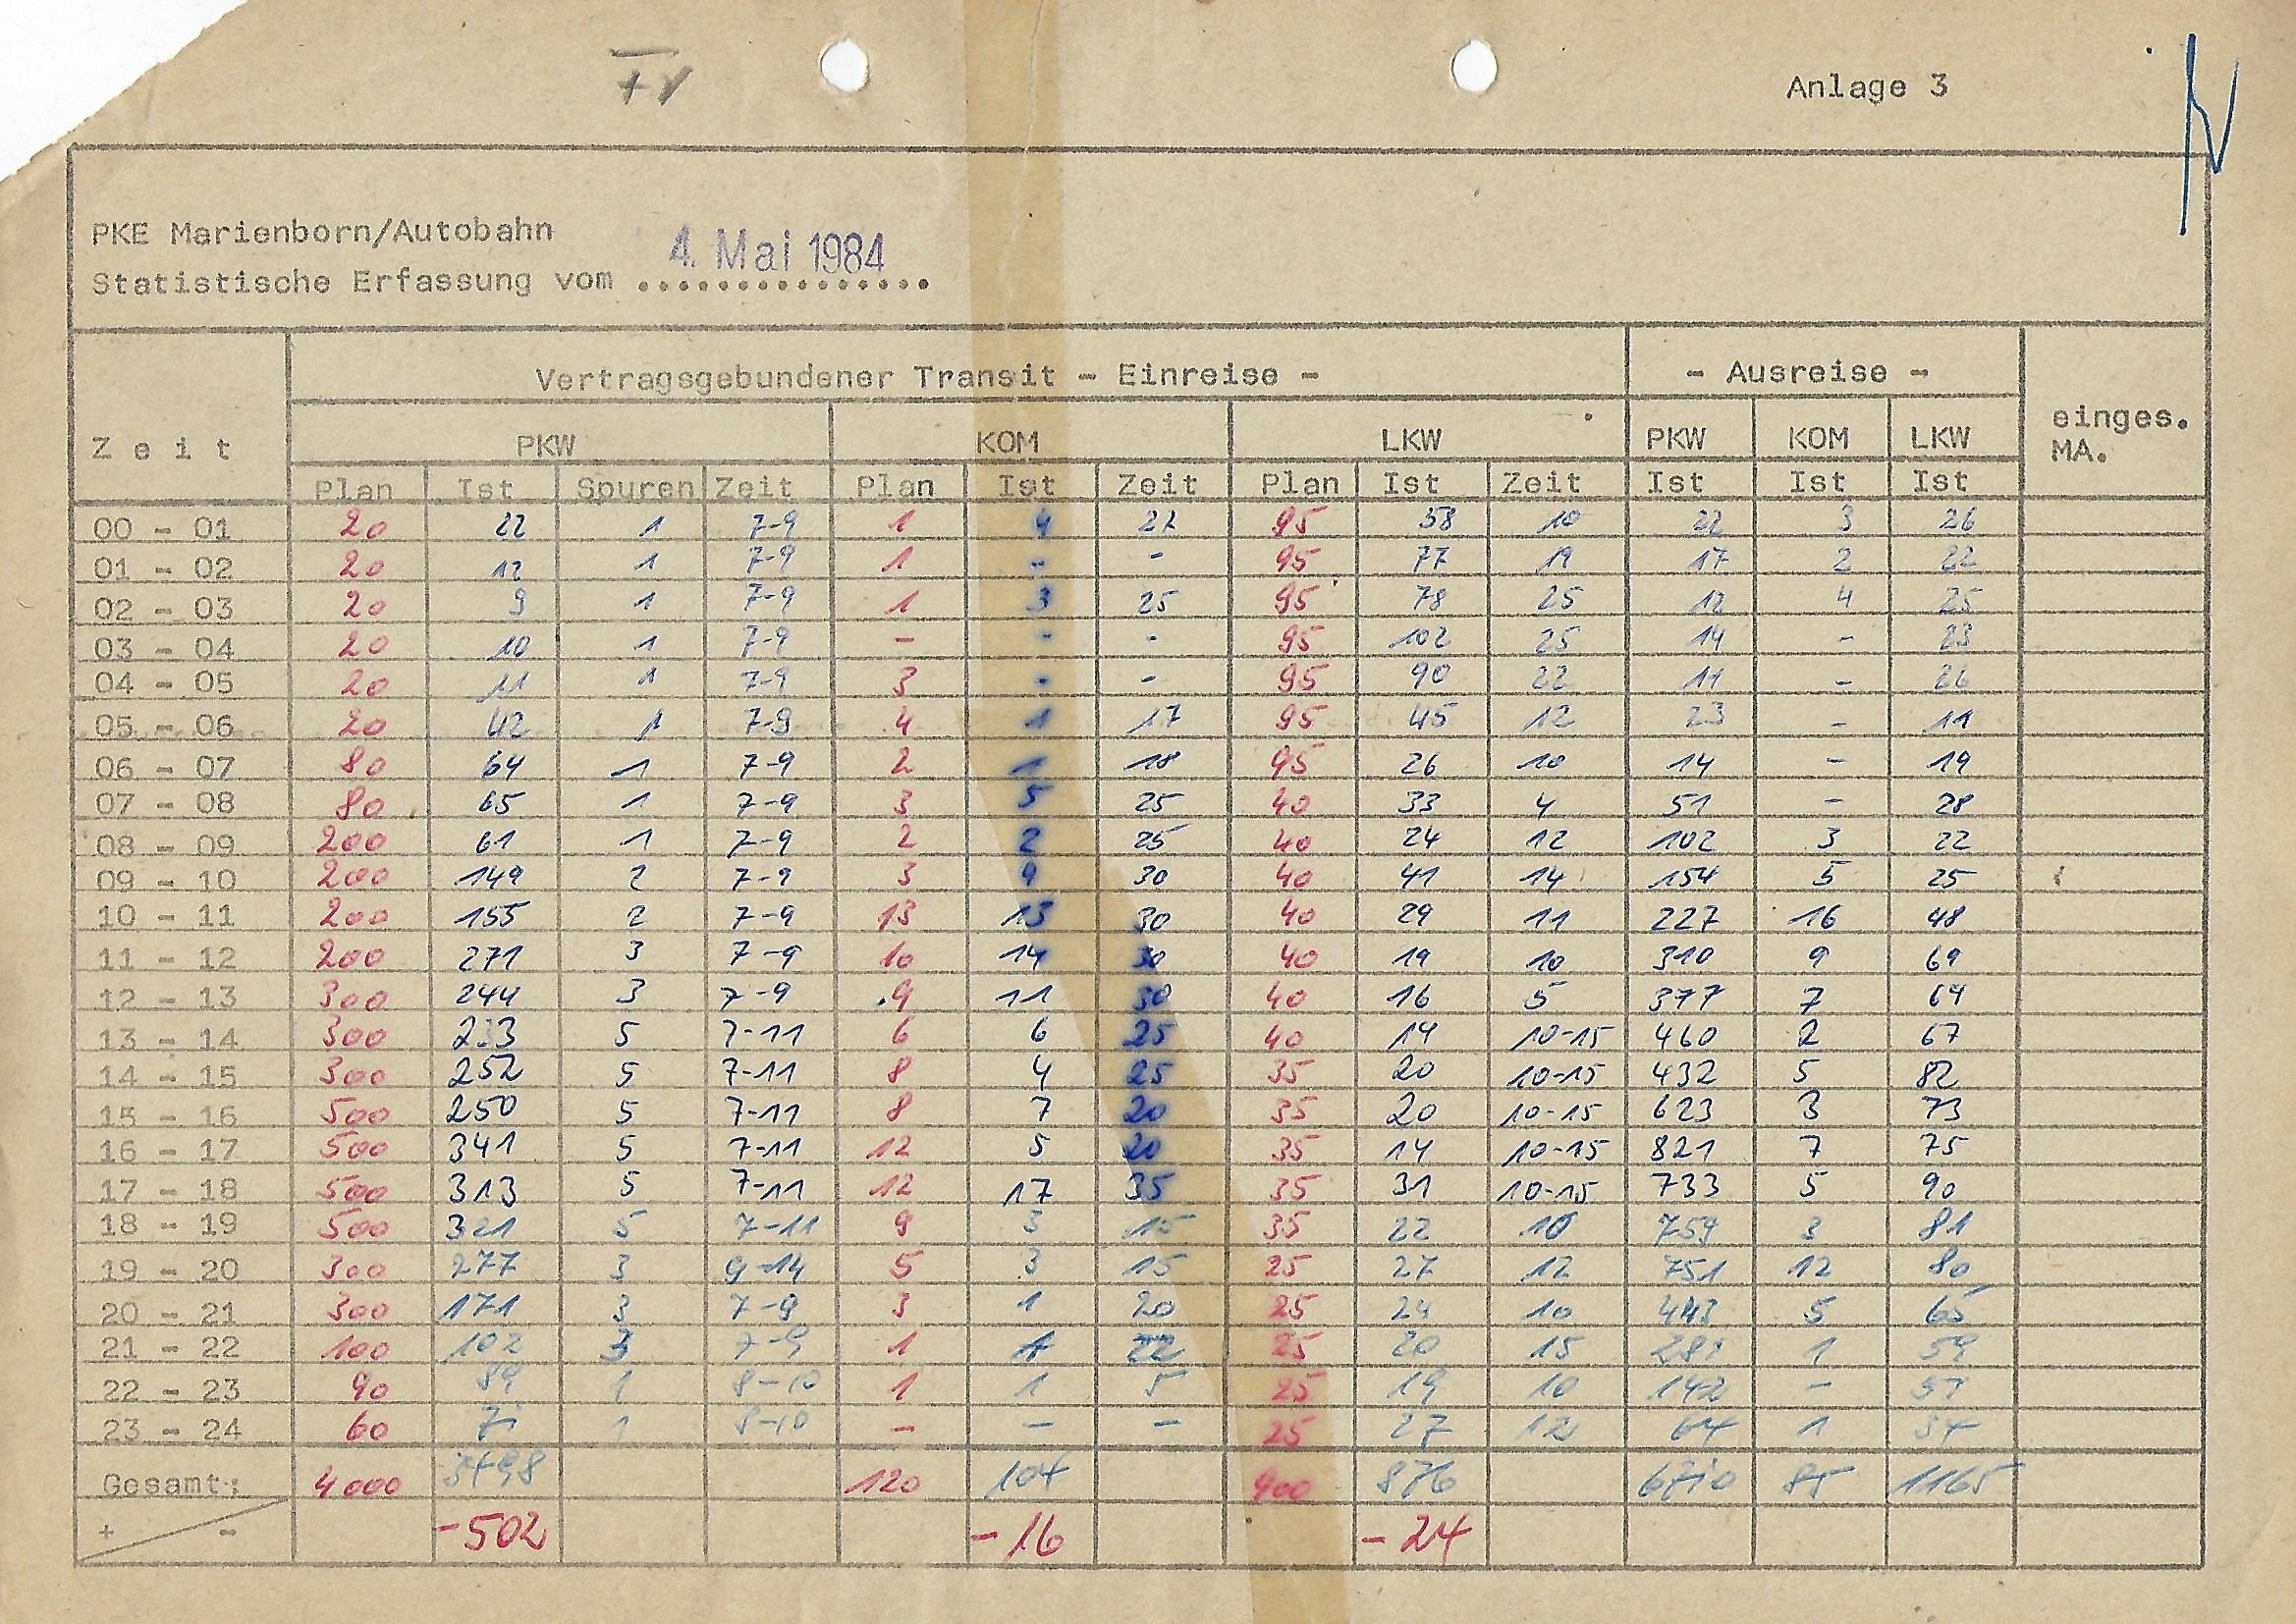 Anlage 3
PKE Marienborn/Autobahn
4. Mai 1984
Statistische Erfassung vom ...............
Vertragsgebundener Transit - Einreise - - Ausreise -
Zeit PKW KOM LKW PKW KOM LKW einges. MA.
Plan Ist Spuren Zeit Plan Ist Zeit Plan Ist Zeit Ist Ist Ist
00 - 01 20 22 1 7-9 1 4 22 95 58 10 22 3 26
01 - 02 20 12 1 7-9 1 - - 95 77 19 17 2 22
02 - 03 20 9 1 7-9 1 3 25 95 78 25 12 4 25
03 - 04 20 10 1 7-9 - - - 95 102 25 14 - 23
04 - 05 20 11 1 7-9 3 - - 95 90 22 11 - 26
05 - 06 20 42 1 7-9 4 1 17 95 45 12 23 - 11
06 - 07 80 64 1 7-9 2 1 18 95 26 10 14 - 19
07 - 08 80 65 1 7-9 3 5 25 40 33 4 51 - 28
08 - 09 200 61 1 7-9 2 2 25 40 24 12 102 3 22
09 - 10 200 149 2 7-9 3 9 30 40 41 14 154 5 25
10 - 11 200 155 2 7-9 13 13 30 40 29 11 227 16 48
11 - 12 200 271 3 7-9 10 14 30 40 19 10 310 9 69
12 - 13 300 244 3 7-9 9 11 30 40 16 5 377 7 64
13 - 14 300 233 5 7-11 6 6 25 40 14 10-15 460 2 67
14 - 15 300 252 5 7-11 8 4 25 35 20 10-15 432 5 82
15 - 16 500 250 5 7-11 8 7 20 35 20 10-15 623 3 73
16 - 17 500 341 5 7-11 12 5 20 35 14 10-15 821 7 75
17 - 18 500 313 5 7-11 12 17 35 35 31 10-15 733 5 90
18 - 19 500 321 5 7-11 9 3 15 35 22 10 759 3 81
19 - 20 300 277 3 9-14 5 3 15 25 27 12 751 12 80
20 - 21 300 171 3 7-9 3 1 20 25 24 10 443 5 65
21 - 22 100 102 3 7-9 1 1 22 25 20 15 1 59
22 - 23 90 89 1 8-10 1 1 5 25 19 10 142 -
23 - 24 60 1 8-10 - - - 25 27 12 64 1
Gesamt: 4000 3498 120 104 900 876 85 1165
+ - -502 -16 -24